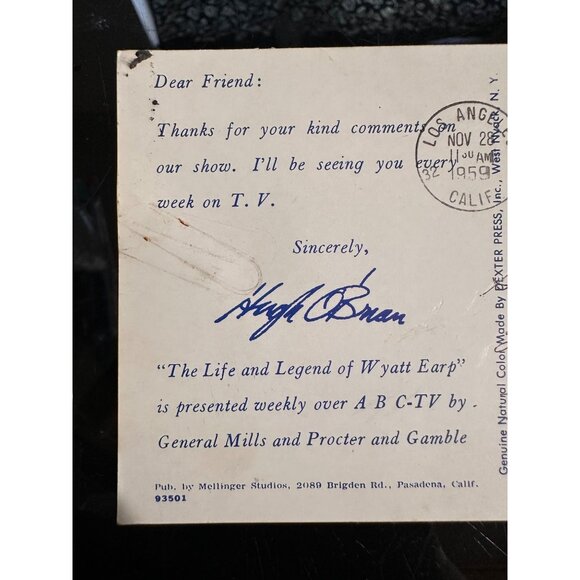 Dear Friend:
Thanks for your kind comments on
our show. I'll be seeing you every
week on T. V.
Sincerely,
Hugh O'Brian
"The Life and Legend of Wyatt Earp"
is presented weekly over A B C-TV by
General Mills and Procter and Gamble
Pub. by Mellinger Studios, 2089 Brigden Rd., Pasadena, Calif.
93501
LOS ANGELES
NOV 28
11 AM
32 1959
CALIF.
Genuine Natural Color Made By DEXTER PRESS, Inc., West Nyack, N. Y.